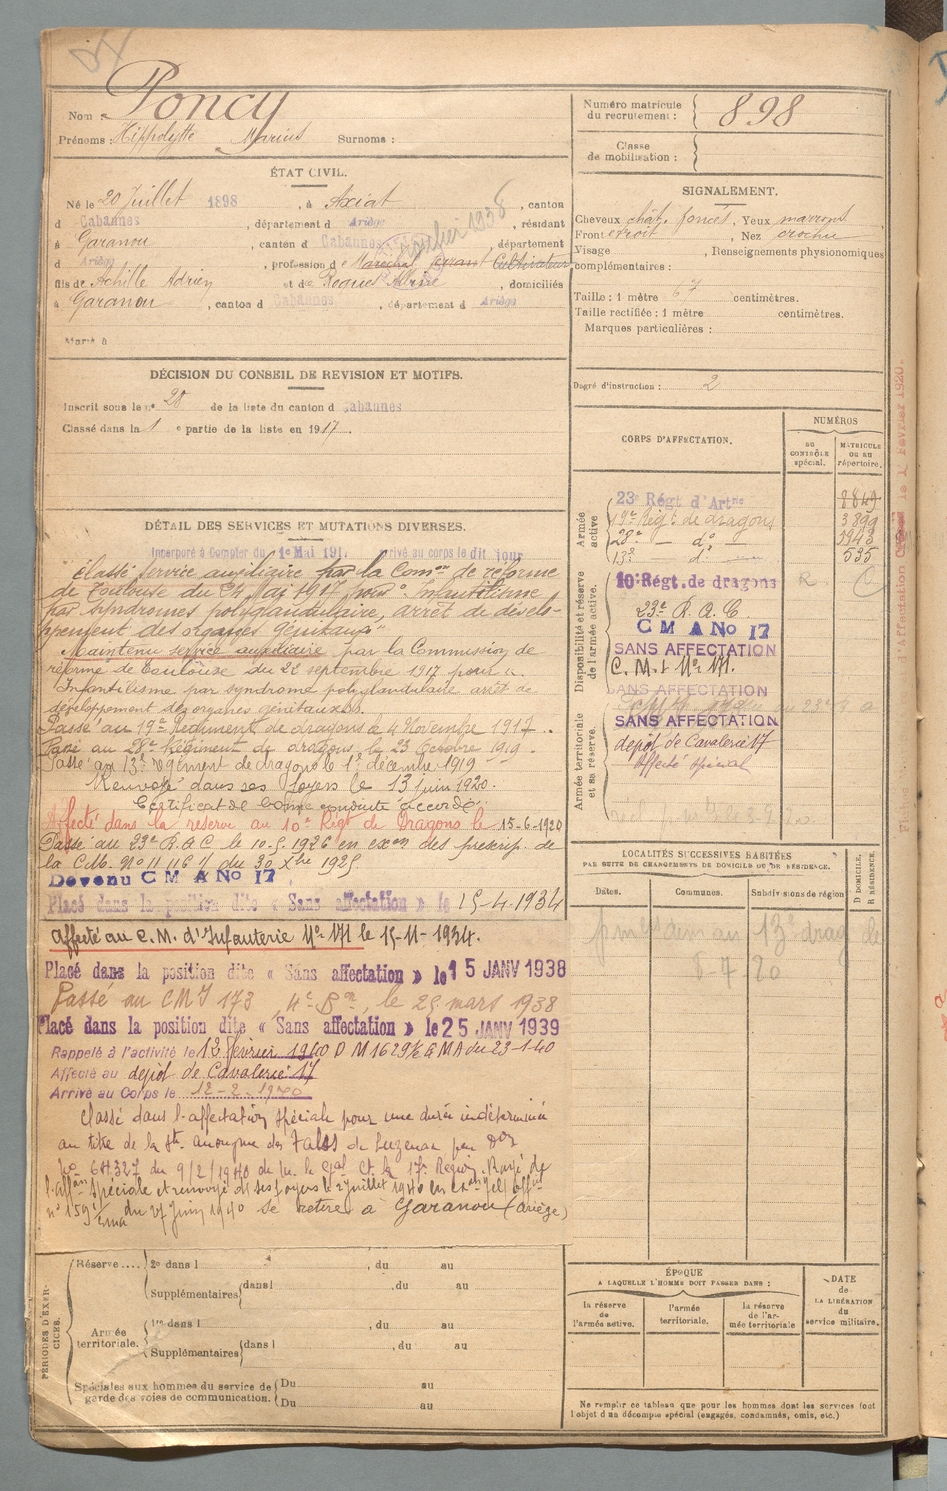 Nom : Poncy
Prénoms : Hippolytte Marius Surnoms :
Numéro matricule du recrutement : 898
Classe de mobilisation :
ÉTAT CIVIL.
Né le 20 Juillet 1898, à Axiat, canton
d Cabannes, département d Ariège, résidant
à Garanou, canton d Cabannes, département
d Ariège, profession d Cultivateur
fils de Achille Adrien et de Roques, domiciliés
à Garanou, canton d Cabannes, département d Ariège
Marié à
SIGNALEMENT.
Cheveux chât. foncés, Yeux marrons
Front étroit, Nez crochu
Visage , Renseignements physionomiques
complémentaires :
Taille : 1 mètre 67 centimètres.
Taille rectifiée : 1 mètre centimètres.
Marques particulières :
Degré d'instruction : 2
DÉCISION DU CONSEIL DE REVISION ET MOTIFS.
Inscrit sous le n° 28 de la liste du canton d Cabannes
Classé dans la 1 e partie de la liste en 1917.
DÉTAIL DES SERVICES ET MUTATIONS DIVERSES.
Incorporé à Compter du 1e Mai 191 arrivé au corps le dit jour
Classé service auxiliaire par la Comon de réforme
de Toulouse du mai 1917 pour "Infantilisme
par syndromes polyglandulaire, arrêt de dévelo-
ppement des organes génitaux"
Maintenu service auxiliaire par la Commission de
réforme de Toulouse du 22 septembre 1917 pour
Infantilisme par syndrome polyglandulaire arrêt de
développement des organes génitaux.
Passé au 19e Régiment de dragons le 4 Novembre 1917
Passé au 28e Régiment de dragons le 23 Octobre 1919.
Passé au 13e régiment de dragons le 1er décembre 1919
Renvoyé dans ses foyers le 13 juin 1920.
Certificat de bonne conduite accordé.
Affecté dans la réserve au 10e Régt de Dragons le 15-6-1920
Passé au 23e R.A.C le 10.5.1926 en exon des prescrip. de
la C.M. N° 11116 7 du 30 Xbre 1925
Devenu C M A No 17
Placé dans la position dite « Sans affectation » le 15-4-1934
Affecté au C.M. d'Infanterie No 171 le 15-11-1934.
Placé dans la position dite « Sans affectation » le 15 JANV 1938
Passé au CMI 173, le 25 mars 1938
Placé dans la position dite « Sans affectation » le 25 JANV 1939
Rappelé à l'activité le 12 février 1940 D M 1629 EMA du 23-1-40
Affecté au dépot de Cavalerie 17
Arrivé au Corps le 12-2-1940
Classé dans l'affectation spéciale pour une durée indéterminée
au titre de la Sté anonyme des Talcs de Luzenac par
No 64327 du 9/2/1940 de M. le Gal Ct la 17e Région. Rayé de
l'affon spéciale et renvoyé ds ses foyers le 2 Juillet 1940 en
n° 159 du 27 Juin 1940 se retire à Garanou (Ariège)
CORPS D'AFFECTATION.
NUMÉROS
AU CONTRÔLE spécial.
MATRICULE OU AU répertoire.
Armée active
23e Régt d'Artrie 8849
19e Régt de dragons 3899
28e — do — 2943
13e — do — 535
Disponibilité et réserve de l'armée active.
10e Régt. de dragons
23e R. A. C
C M A No 17
SANS AFFECTATION
C. M. I No 171.
SANS AFFECTATION
Armée territoriale et sa réserve.
SANS AFFECTATION
dépot de Cavalerie 17
Affecté spécial
LOCALITÉS SUCCESSIVES HABITÉES
PAR SUITE DE CHANGEMENTS DE DOMICILE OU DE RÉSIDENCE.
Dates. Communes. Subdivisions de région
D DOMICILE, R RÉSIDENCE.
au 13e drag
8-7-20
PÉRIODES D'EXERCICES.
Réserve.... 2e dans l , du au
Supplémentaires dans l , du au
Armée territoriale. 1re dans l , du au
Supplémentaires dans l , du au
Spéciales aux hommes du service de garde des voies de communication. Du au
Du au
ÉPOQUE
A LAQUELLE L'HOMME DOIT PASSER DANS :
la réserve de l'armée active.
l'armée territoriale.
la réserve de l'armée territoriale
DATE de LA LIBÉRATION du service militaire.
Ne remplir ce tableau que pour les hommes dont les services font
l'objet d'un décompte spécial (engagés, condamnés, omis, etc.)